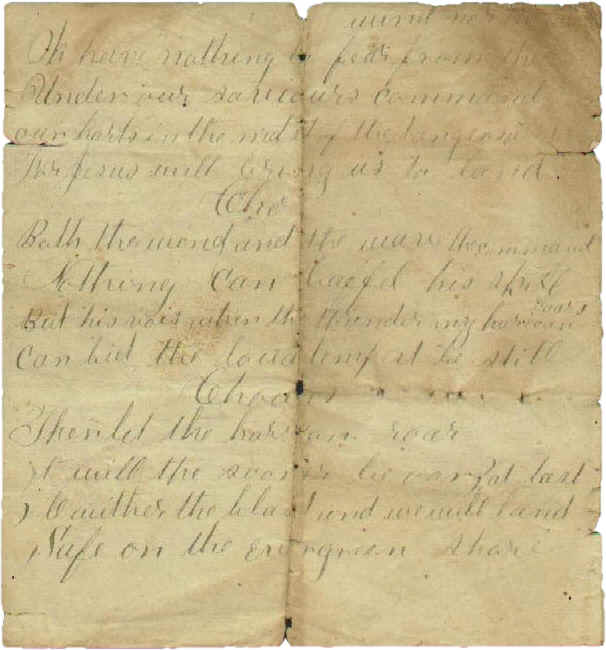 wind nor
We have nothing to fear from the
Under our saviours command
our harts in the midst of the dangers
For Jesus will bring us to land
Cho
Both the wond and the wave the command
Nothing can baffel his skill
But his vois when the thunder my harecan roars
Can bid the loud tempist be still
Choous
Then let the harecan roar
it will the sooner be oar at last
wither the blast and we will land
Safe on the evergreen shore